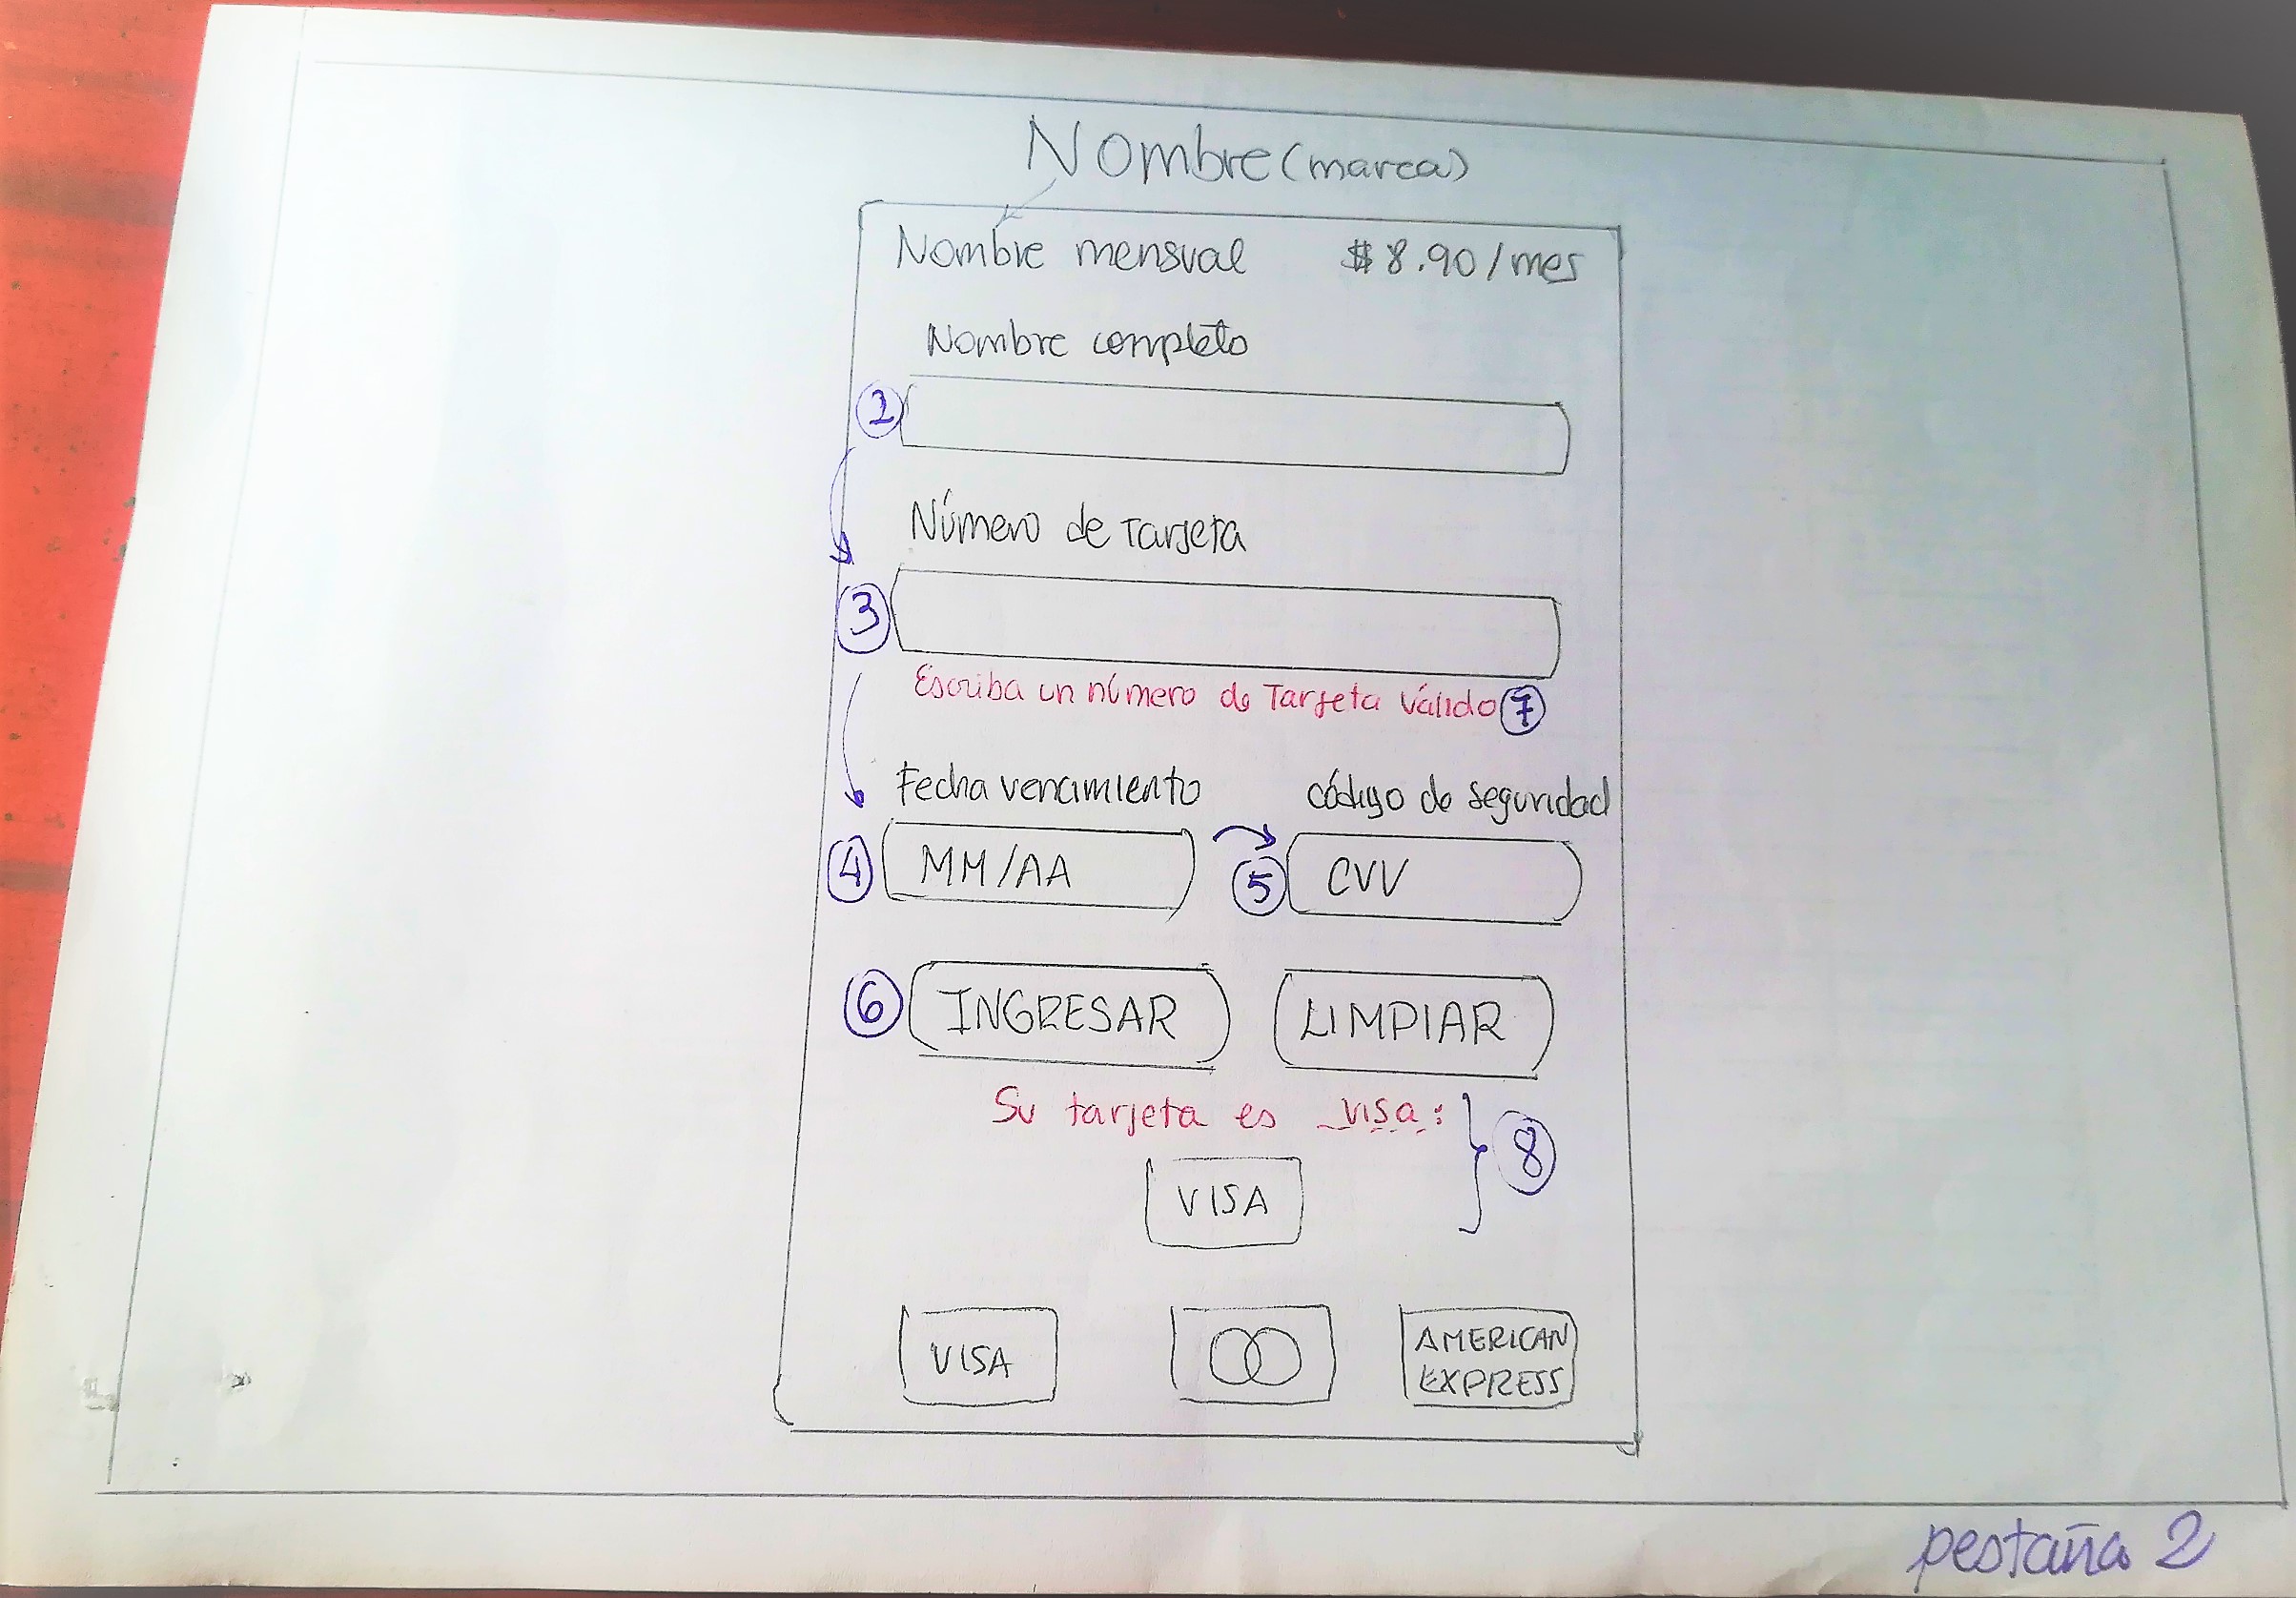 Nombre (marca)
Nombre mensual $8.90/mes
Nombre completo
2
Número de Tarjeta
3
Escriba un número de Tarjeta Válido 7
Fecha vencimiento código de seguridad
4 MM/AA 5 CVV
6 INGRESAR LIMPIAR
Su tarjeta es visa: 8
VISA
VISA AMERICAN
EXPRESS
pestaña 2